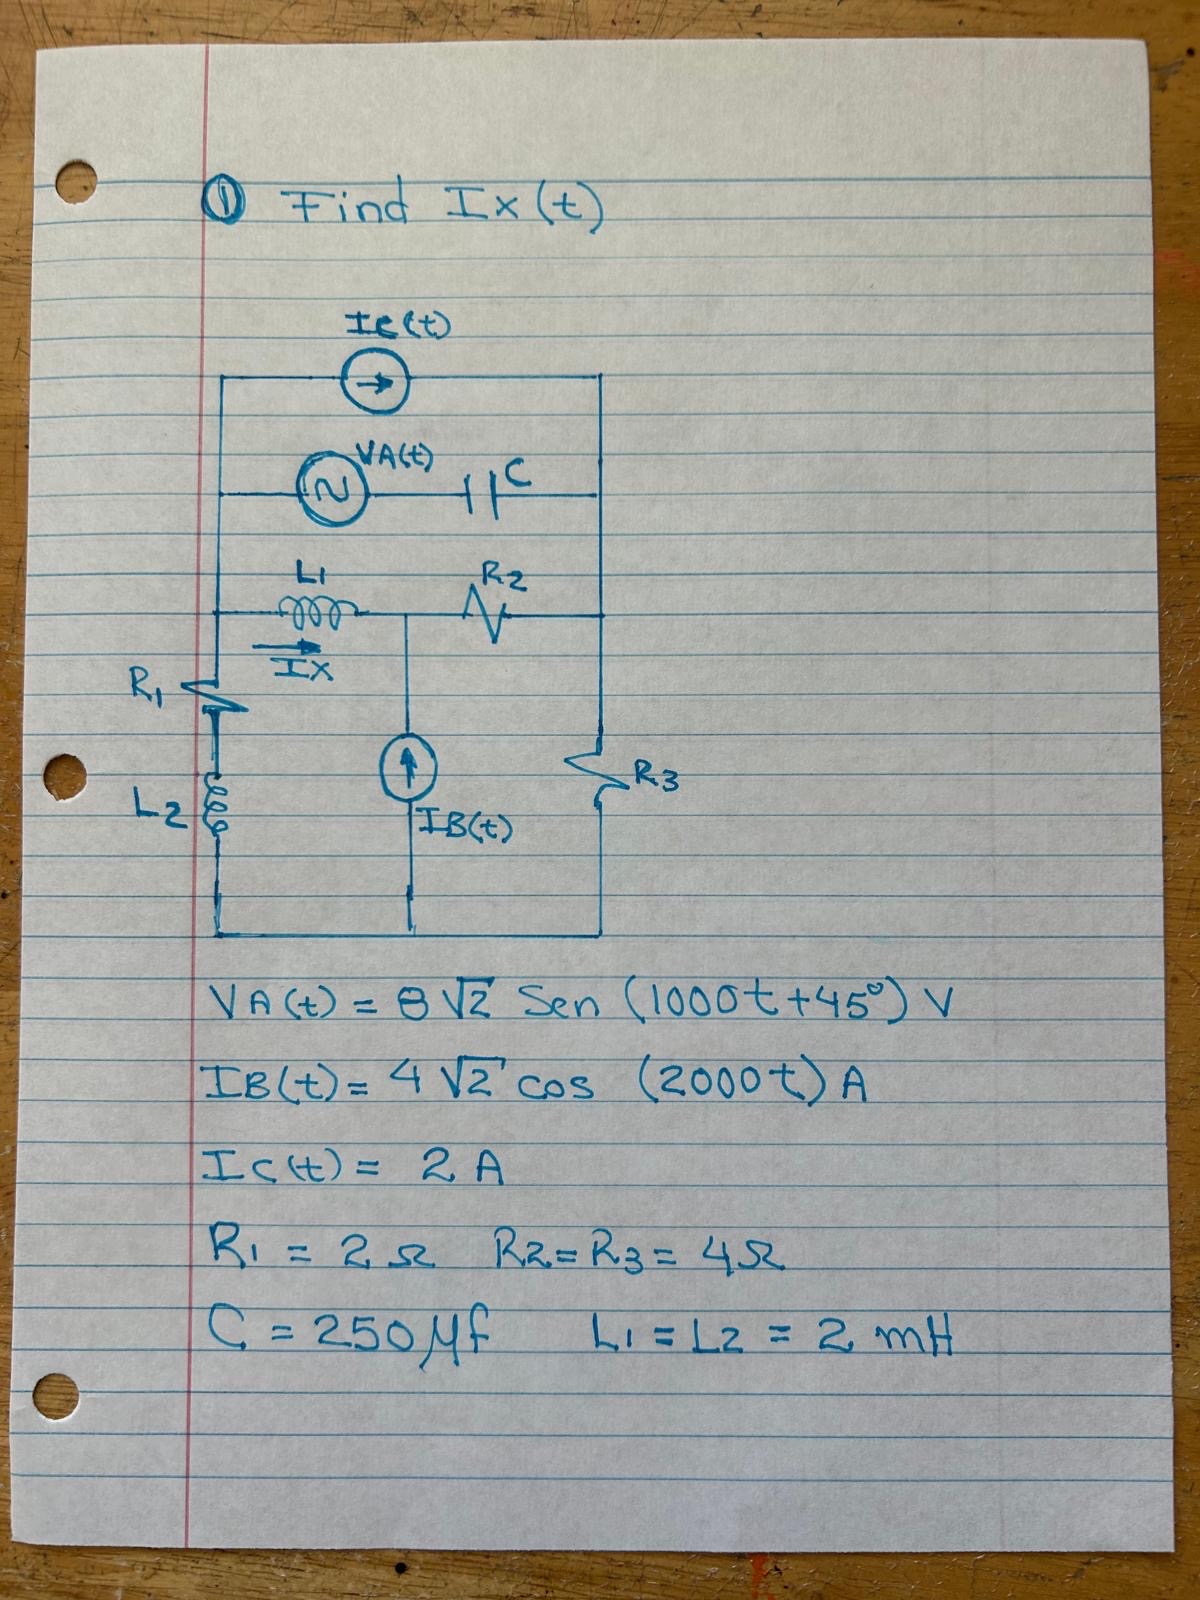 ① Find Ix(t)
Ic(t)
VA(t)
C
L1
R2
Ix
R1
R3
L2
IB(t)
VA(t) = 8√2 Sen (1000t+45°) V
IB(t) = 4√2 cos (2000t) A
Ic(t) = 2 A
R1 = 2Ω R2=R3= 4Ω
C = 250μf L1 = L2 = 2 mH